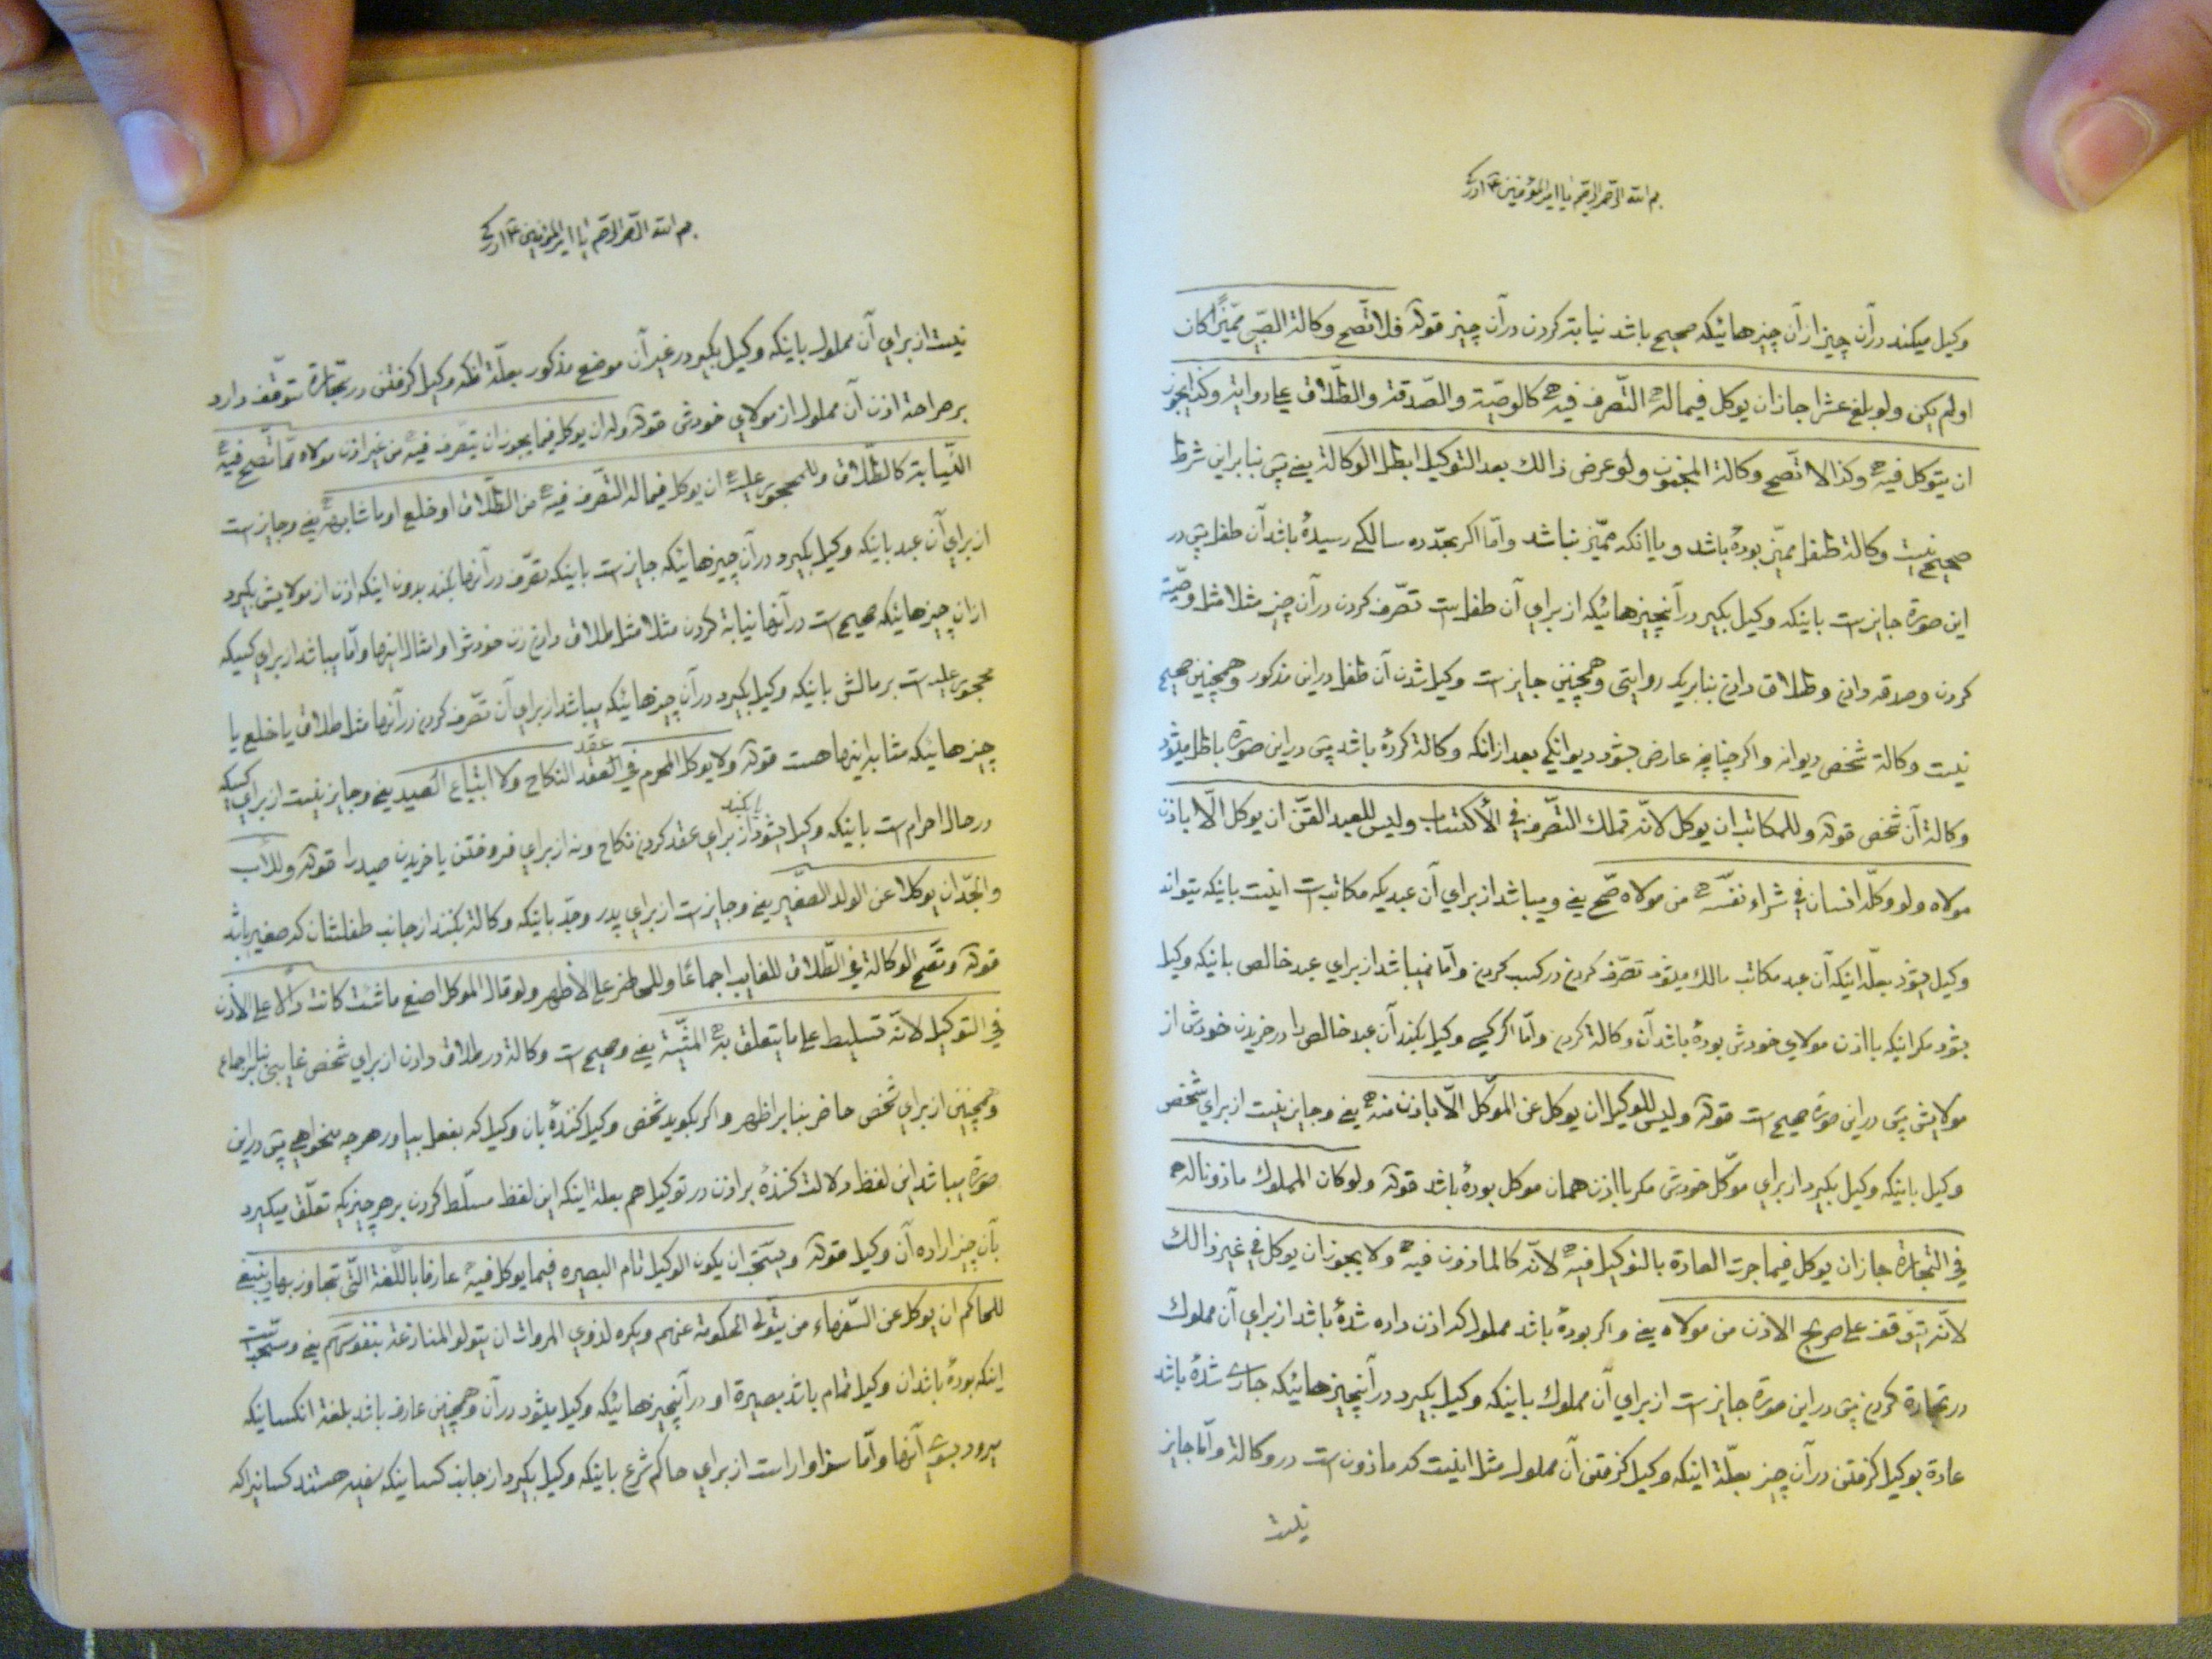 بسم الله الرحمن الرحیم یا امیرالمؤمنین ع ادرکنی
وکیل میکند در آن چیز از آن چیزهائیکه صحیح باشد نیابة کردن در آن چیز قوله فلا تصح وکالة الصّبی ممیّزاً کان
او لم یکن ولو بلغ عشرا جاز ان یوکل فیما له التّصرف فیه کالوصیّة والصّدقة والطّلاق علی روایة وکذا یجوز
ان یتوکل فیه وکذا لا تصّح وکالة المجنون ولو عرض ذالك بعد التوکیل ابطل الوکالة یعنے پس بنابراین شرط
صحیح نیست وکالة طفل ممیّز بوده باشد و یا انکه ممیّز نباشد وامّا اکر بحدّ ده سالکے رسیدهٔ باشد آن طفل پس در
این صورة جایز است باینکه وکیل بکیرد در آنچیزهائیکه از برای آن طفل است تصّرف کردن در آن چیز مثلا مثل وصیّة
کردن وصدقه دادن وطلاق دادن بنابر یك روایتی وهمچنین جایز است وکیل شدن آن طفل در این مذکور وهمچنین صحیح
نیست وکالة شخص دیوانه واکر چنانچه عارض بشود دیوانکی بعد از انکه وکالة کردهٔ باشد پس در این صورة باطل میشود
وکالة آن شخص قوله وللمکاتب ان یوکل لانّه تملك التصّرف فی الاکتساب ولیس للعبد القنّ ان یوکل الّا باذن
مولاه ولو وکلّه انسان فی شراء نفسه من مولاه صّح یعنے ومیباشد از برای آن عبدیکه مکاتب است اینست باینکه بتواند
وکیل بشود بعلّة اینکه آن عبد مکاتب مالك میشود تصّرف کردن در کسب کردن وامّا نمیباشد از برای عبد خالص باینکه وکیل
بشود مکر اینکه با اذن مولای خودش بودهٔ باشد آن وکالة کردن وامّا اکر کسے وکیل بکند آن عبد خالص را در خریدن خودش از
مولایش پس در این صورة صحیح است قوله ولیس للوکیل ان یوکل عن الموّکل الّا باذن منه یعنے وجایز نیست از برای شخص
وکیل باینکه وکیل بکیرد از برای موّکل خودش مکر با اذن همان موکل بودهٔ باشد قوله ولو کان المملوك ماذونا له
فی التجارة جاز ان یوکل فیما جرت العادة بالتوکیل فیه لانّه کالماذون فیه ولا یجوز ان یوکل فی غیر ذالك
لانّه یتوّقف علی صریح الاذن من مولاه یعنے واکر بودهٔ باشد مملوك که اذن داده شدهٔ باشد از برای آن مملوك
در تجارة کردن پس در این صورة جایز است از برای آن مملوك باینکه وکیل بکیرد در آنچیزهائیکه جاری شدهٔ باشد
عادة بوکیل کرفتن در آن چیز بعلّة اینکه وکیل کرفتن آن مملوك مثل اینست که ماذون است در وکالة وامّا جایز
نیست
بسم الله الرحمن الرحیم یا امیرالمؤمنین ع ادرکنی
نیست از برای آن مملوك باینکه وکیل بکیرد در غیر آن موضع مذکور بعلّة انکه وکیل کرفتن در تجارة توقّف دارد
بر صراحة اذن آن مملوك از مولای خودش قوله وله ان یوکل فیما یجوز ان یتصّرف فیه من غیر اذن مولاه ممّا تصّح فیه
النّیابة کالطّلاق وللمحجور علیه ان یوکل فیما له التصّرف فیه من الطّلاق او خلع او ما شابهه یعنے وجایز است
از برای آن عبد باینکه وکیل بکیرد در آن چیزهائیکه جایز است باینکه تصّرف در آنها بکند بدون اینکه اذن از مولایش بکیرد
از ان چیزهائیکه صحیح است در آنها نیابة کردن مثلا مثل طلاق دادن زن خودش را وامثال اینها وامّا میباشد از برای کسیکه
محجور علیه است بر مالش باینکه وکیل بکیرد در آن چیزهائیکه میباشد از برای آن تصّرف کردن در آنها مثل طلاق یا خلع یا
چیزهائیکه مشابه اینها هست قوله ولا یوکل المحرم فی العقد النکاح ولا ابتیاع الصید یعنے وجایز نیست از برای کسیکه
عقد
در حال احرام است باینکه وکیل بشود از برای عقد کردن نکاح ونه از برای فروختن یا خریدن صید را قوله وللاب
یا بکند
والجدّ ان یوکلا عن الولد الصغّیر یعنے وجایز است از برای پدر وجدّ باینکه وکالة بکنند از جانب طفلشان که صغیر باشد
قوله وتصّح الوکالة فی الطّلاق للغایب اجماعًا وللحاضر علی الاظهر ولو قال الموکل اصنع ما شئت کانت دالّا علی الاذن
فی التوکیل لانّه تسلیط علی ما یتعلق به المشّیة یعنے وصحیح است وکالة در طلاق دادن از برای شخص غایب بنابر اجماع
وهمچنین از برای شخص حاضر بنابر اظهر واکر بکوید شخص وکیل کنندهٔ بان وکیل که بفعل بیاور هر چه میخواهے پس در این
صورة میباشد این لفظ دلالت کنندهٔ بر اذن در توکیل هم بعلة اینکه این لفظ مسلّط کردن بر هر چیزیکه تعلّق میکیرد
بآن چیز اراده آن وکیل قوله ویستحّب ان یکون الوکیل تام البصیره فیما یوکل فیه عارفا باللّغة الّتی تجاوز بها وینبغے
للحاکم ان یوکل عن السّفهاء من یتولّی الحکومة عنهم ویکره لذوی المروات ان یتولو المنازعة بنفوسهم یعنے ومستحّبست
اینکه بودهٔ باشد ان وکیل تمام باشد بصیرة او در آنچیزهائیکه وکیل میشود در آن وهمچنین عارف باشد بلغة انکسانیکه
میرود بسوی آنها وامّا سزاوار است از برای حاکم شرع باینکه وکیل بکیرد از جانب کسانیکه سفیه هستند کسانیرا که